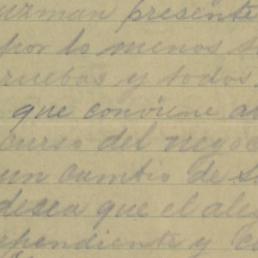 uzman presente
por lo menos s
ruebas y todos
que conviene a
curso del negoc
un cambio de s
desea que el ale
ependiente y c